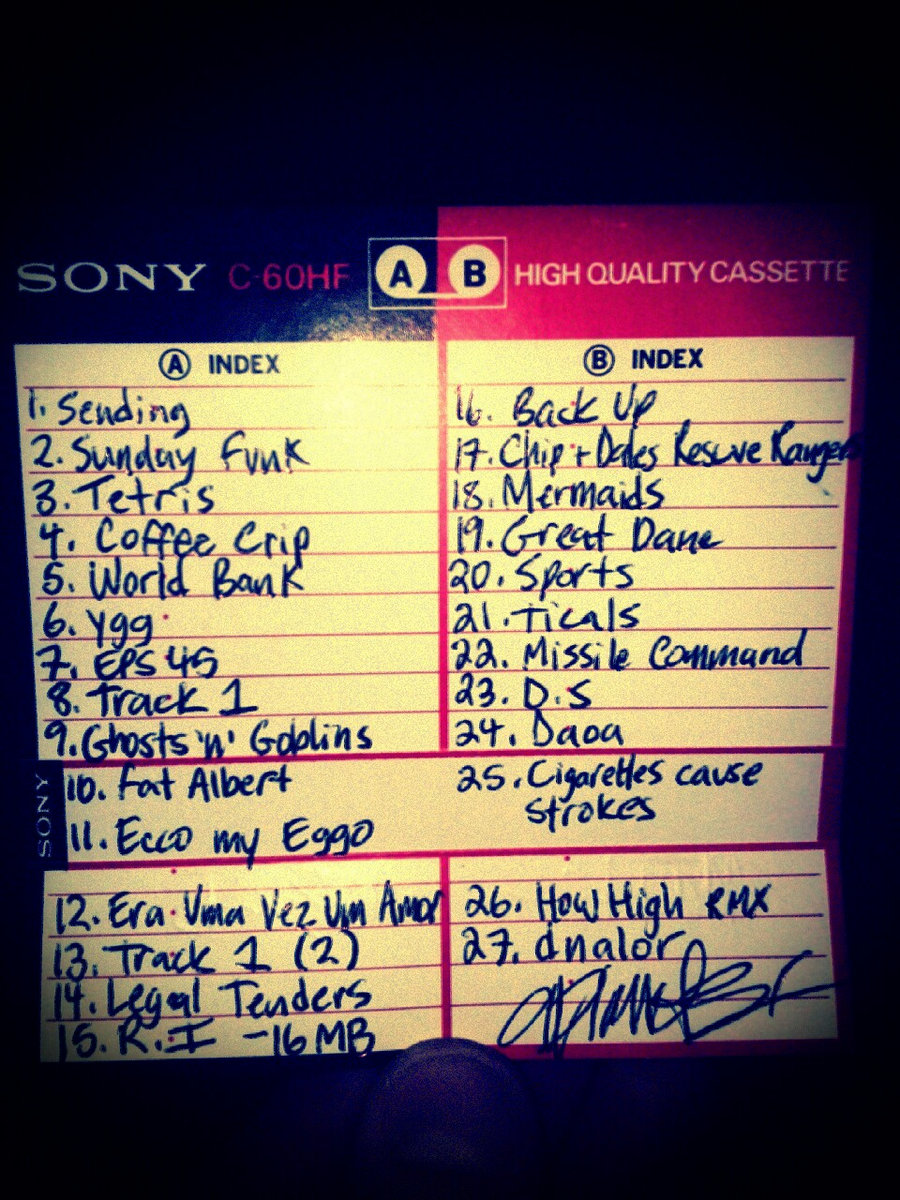 SONY C-60HF A B HIGH QUALITY CASSETTE
A INDEX
1. Sending
2. Sunday Funk
3. Tetris
4. Coffee Crip
5. World Bank
6. ygg
7. EPS 45
8. Track 1
9. Ghosts 'n' Goblins
SONY
10. Fat Albert
11. Ecco my Eggo
12. Era Uma Vez Um Amor
13. Track 1 (2)
14. Legal Tenders
15. R.I -16 MB
B INDEX
16. Back Up
17. Chip + Dales Rescue Rangers
18. Mermaids
19. Great Dane
20. Sports
21. Ticals
22. Missile Command
23. D.S
24. Daoa
25. Cigarettes cause
strokes
26. How High RMX
27. dnalor